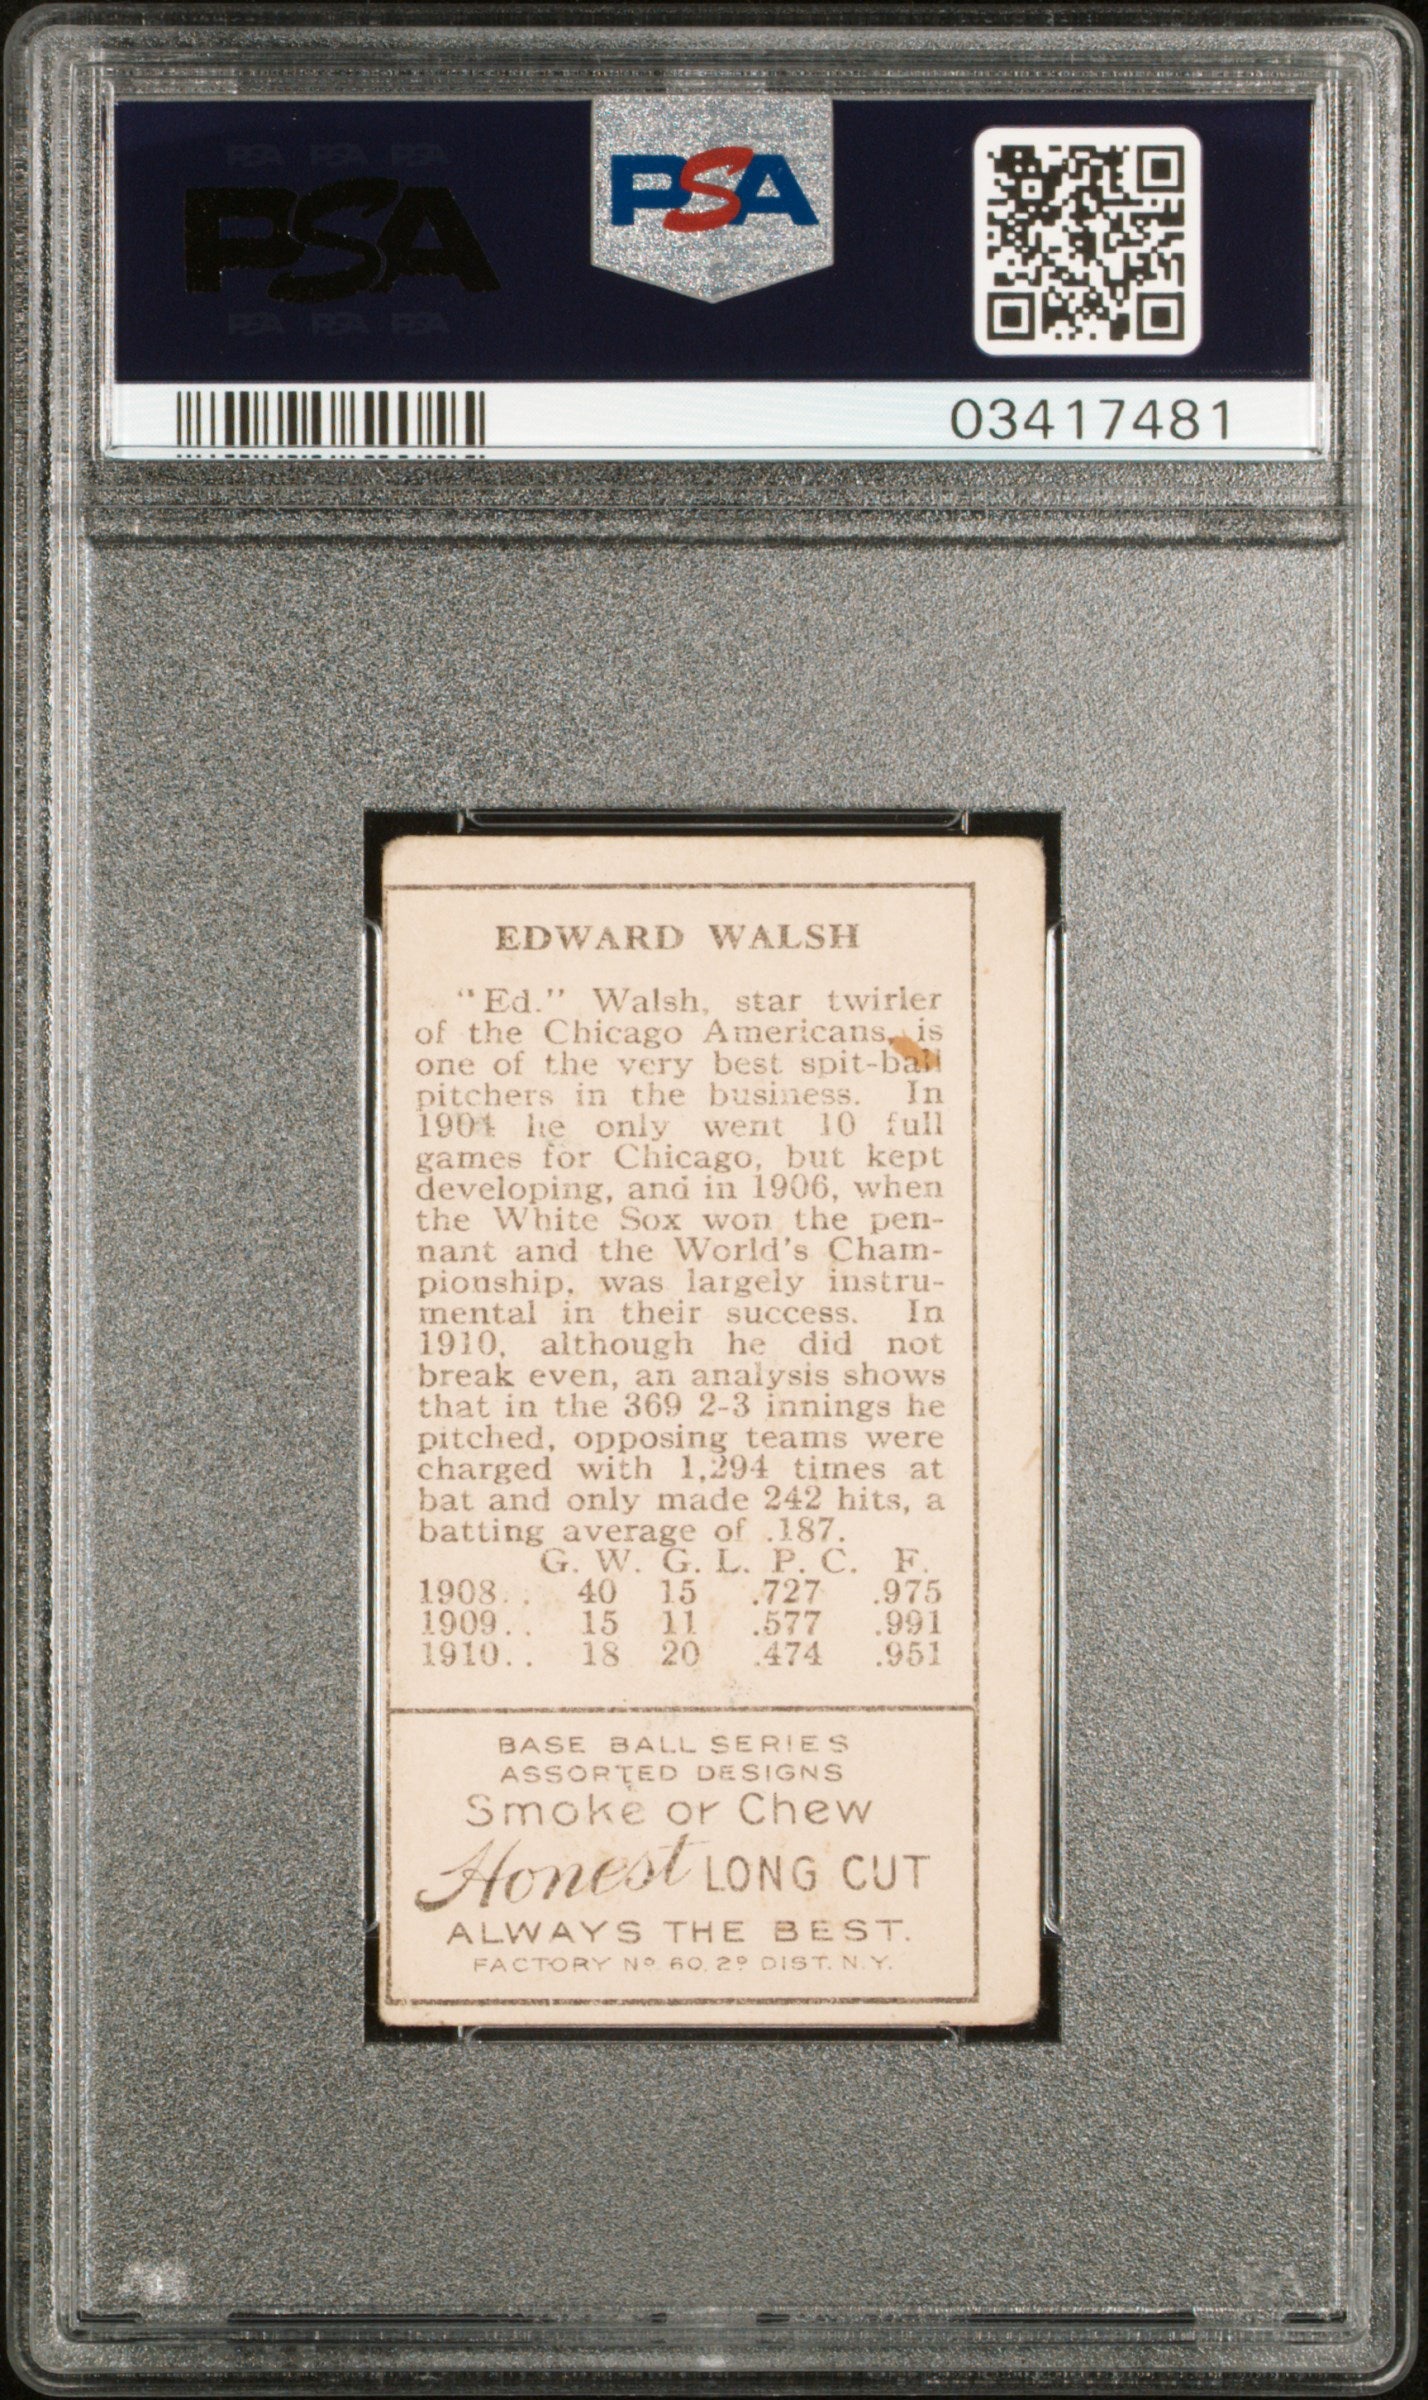 PSA PSA PSA
PSA
PSA PSA PSA
PSA
03417481
EDWARD WALSH
"Ed." Walsh, star twirler
of the Chicago Americans, is
one of the very best spit-ball
pitchers in the business. In
1904 he only went 10 full
games for Chicago, but kept
developing, and in 1906, when
the White Sox won the pen-
nant and the World's Cham-
pionship, was largely instru-
mental in their success. In
1910, although he did not
break even, an analysis shows
that in the 369 2-3 innings he
pitched, opposing teams were
charged with 1,294 times at
bat and only made 242 hits, a
batting average of .187.
G. W. G. L. P. C. F.
1908.. 40 15 .727 .975
1909.. 15 11 .577 .991
1910.. 18 20 .474 .951
BASE BALL SERIES
ASSORTED DESIGNS
Smoke or Chew
Honest LONG CUT
ALWAYS THE BEST.
FACTORY Nº 60, 2º DIST. N.Y.